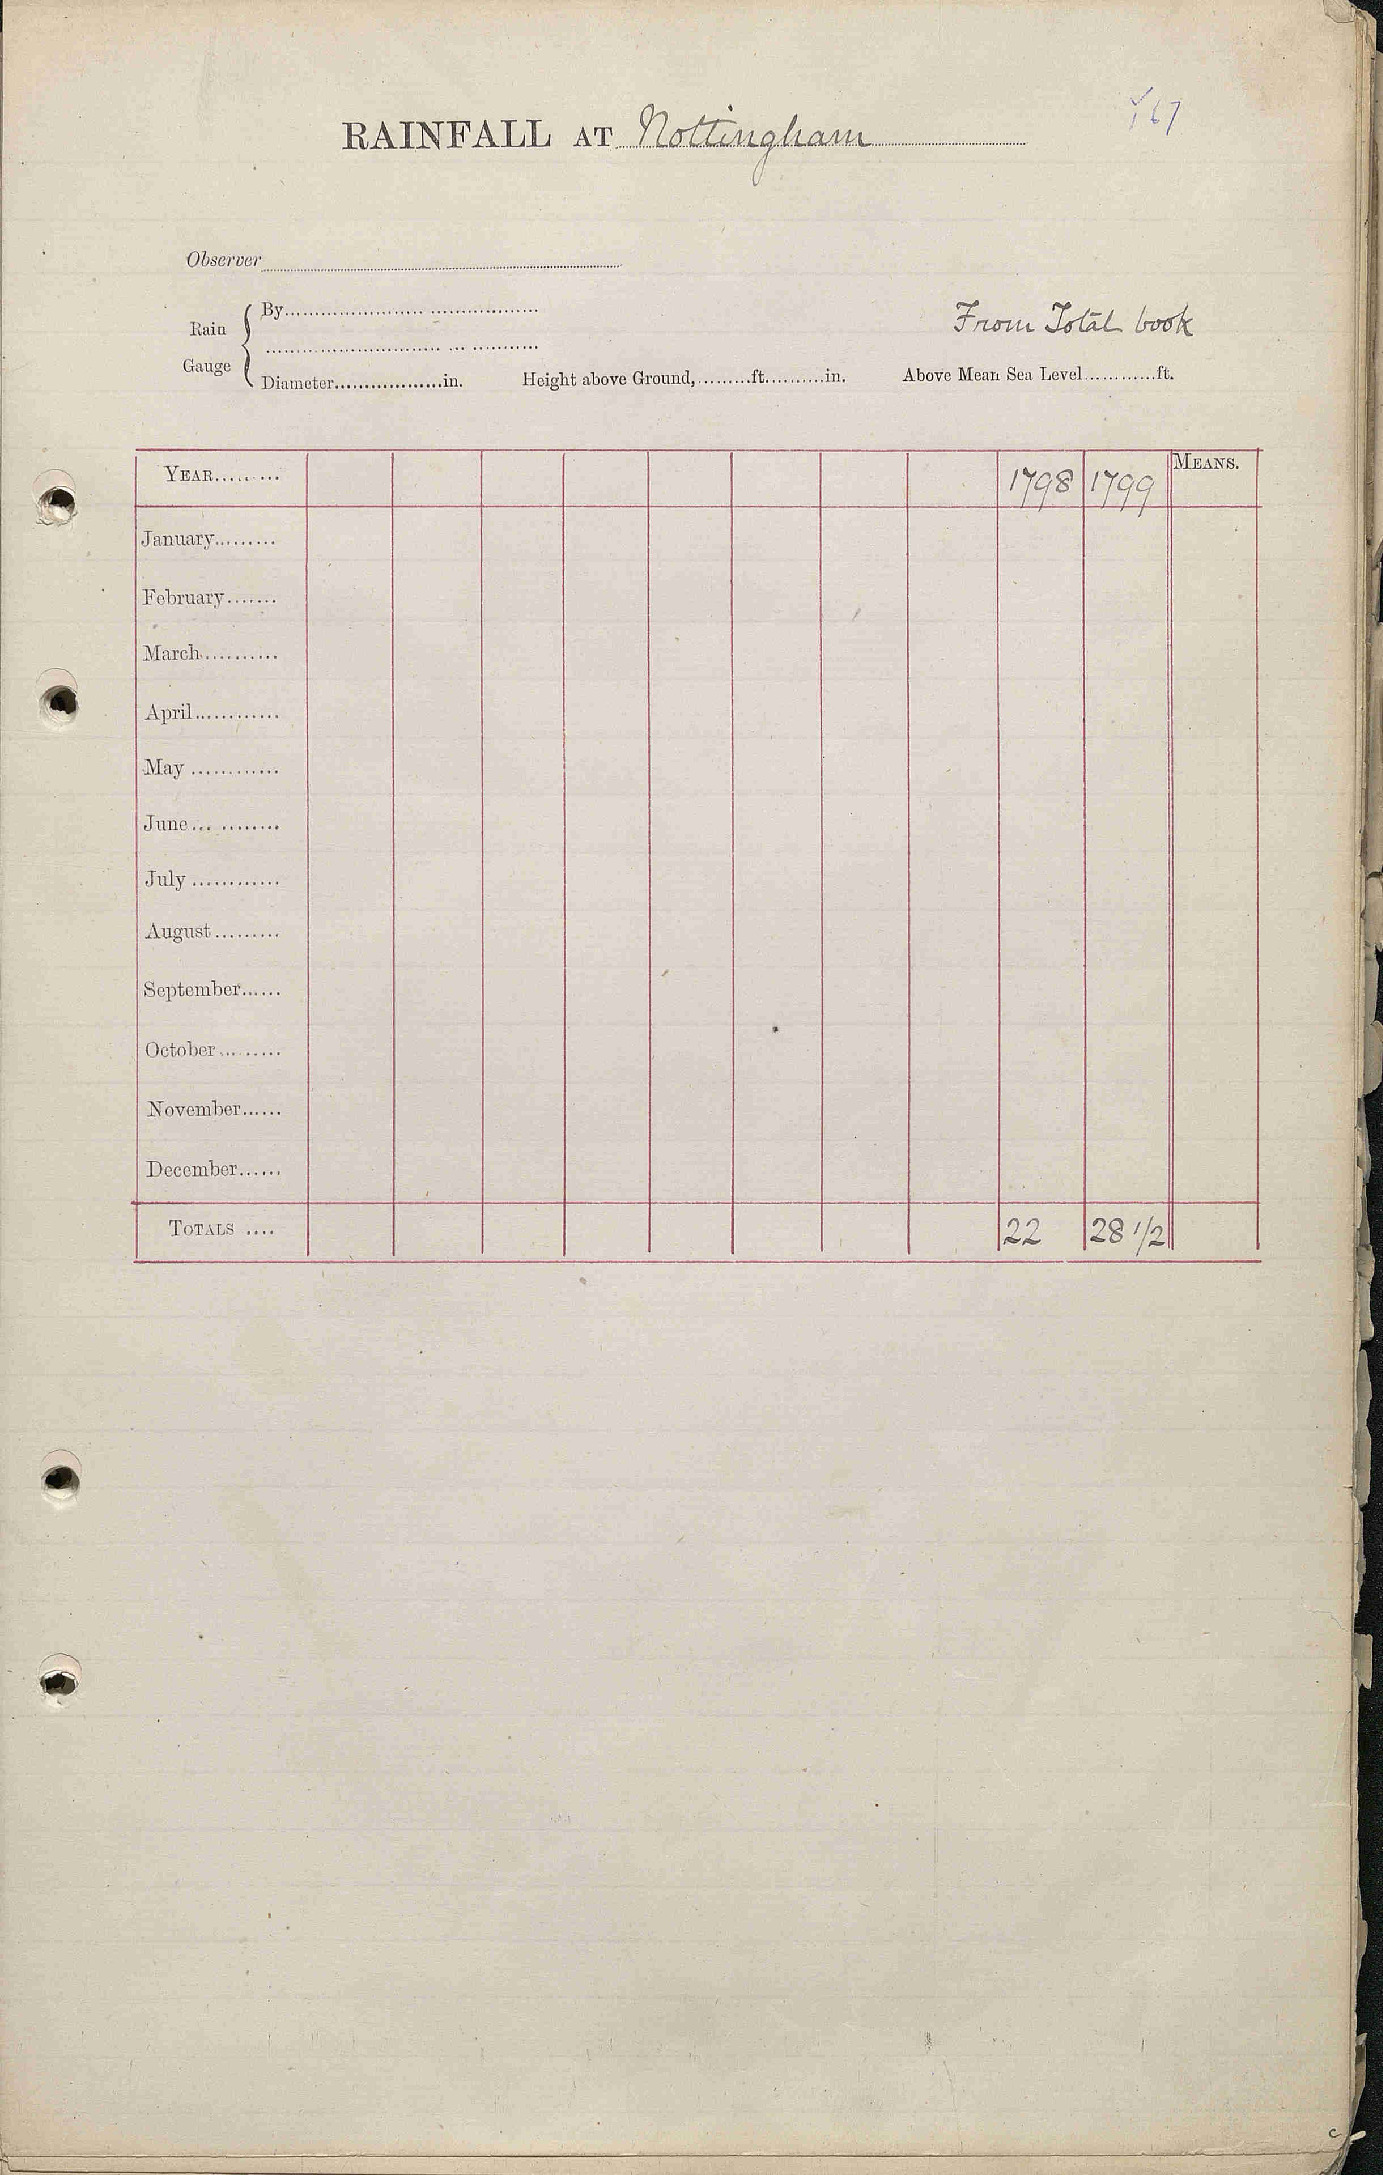 RAINFALL AT Nottingham
Observer
Rain Gauge
By
From Total book
Diameter in. Height above Ground, ft. in. Above Mean Sea Level ft.
YEAR 1798 1799 MEANS.
January
February
March
April
May
June
July
August
September
October
November
December
TOTALS 22 28 1/2